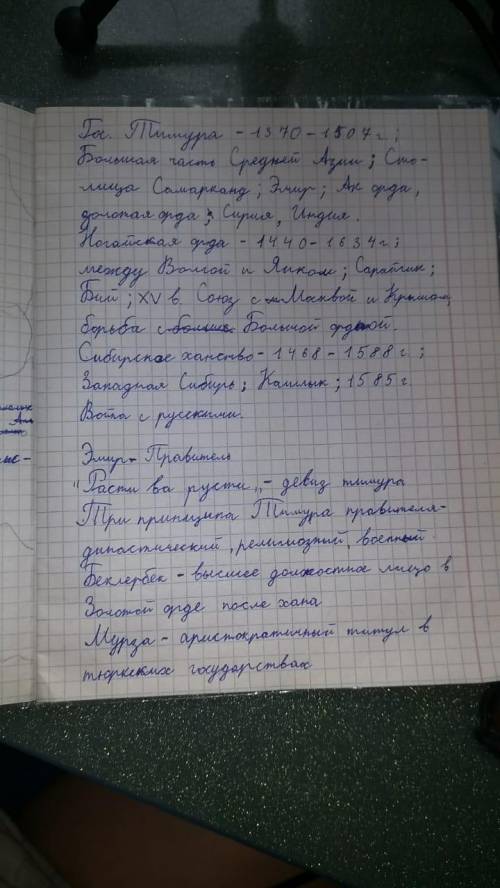 Гос. Тимура - 1370-1507 г;
Большая часть Средней Азии; Сто-
лица Самарканд; Эмир; Ак орда,
золотая орда; Сирия, Индия.
Ногайская орда - 1440-1634г;
между Волгой и Яиком; Сарайчик;
Бий; XV в. Союз с Москвой и Крымом,
борьба с больше Большой ордой.
Сибирское ханство - 1468-1588 г;
Западная Сибирь; Кашлык; 1585 г.
Война с русскими.
Эмир - Правитель
"Расти ва русти" - девиз тимура
Три принципа Тимура правителя-
династический, религиозный, военный.
Беклербек - высшее должностное лицо в
Золотой орде после хана
Мурза - аристократичный титул в
тюркских государствах